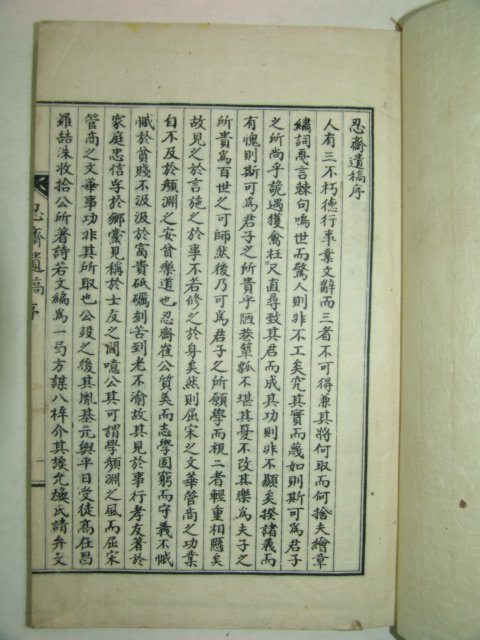 忍齋遺稿序
人有三不朽德行事業文辭而三者不可得兼其將何取而何捨夫繪章
繡詞惡言棘句鳴世而驚人則非不工矣究其實而蔑如則斯可爲君子
之所尚乎詭遇獲禽枉尺直尋致其君而成其功則非不顯矣揆諸義而
有愧則斯可爲君子之所貴乎陋巷簞瓢不堪其憂不改其樂爲夫子之
所貴爲百世之可師然後乃可爲君子之所願學而視二者輕重相懸矣
故見之於言施之於事不若修之於身矣然則屈宋之文華管商之功業
自不及於顔淵之安貧樂道也忍齋崔公質美而志學固窮而守義不慽
慽於貧賤不汲汲於富貴砥礪刻苦到老不渝故其見於事行孝友著於
家庭忠信孚於鄉黨見稱於士友之間噫公其可謂學顔淵之風而屈宋
管商之文華事功非其所取也公歿之後其胤基元與平日受徒高在昌
羅喆洙收拾公所著詩若文編爲一弓方謀入梓介其族允煥氏請弁文
忍齋遺稿 序
一